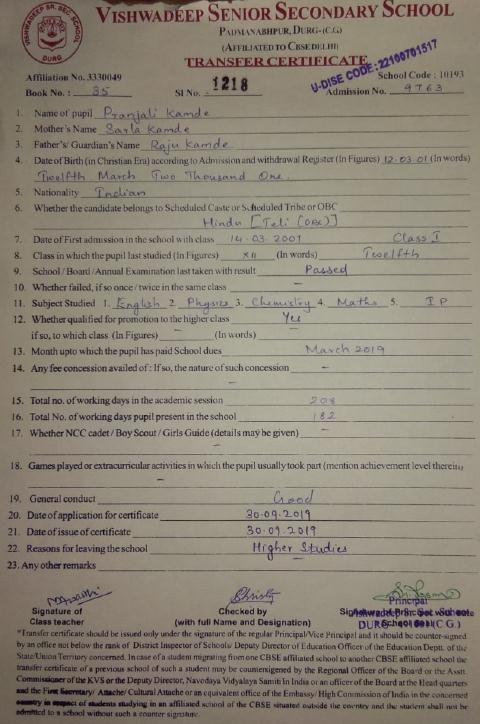 VISHWADEEP SR. SEC. SCHOOL
DURG
VISHWADEEP SENIOR SECONDARY SCHOOL
PADMANABHPUR, DURG-(C.G.)
(AFFILIATED TO CBSE DELHI)
TRANSFER CERTIFICATE
U-DISE CODE: 22100701517
Affiliation No. 3330049 School Code : 10193
Book No. : 35 Sl No. 1218 Admission No. 9763
1. Name of pupil Pranjali Kamde
2. Mother's Name Sarla Kamde
3. Father's/ Guardian's Name Raju Kamde
4. Date of Birth (in Christian Era) according to Admission and withdrawal Register (In Figures) 12-03-01 (In words)
Twelfth March Two Thousand One.
5. Nationality Indian
6. Whether the candidate belongs to Scheduled Caste or Scheduled Tribe or OBC
Hindu [Teli (OBC)]
7. Date of First admission in the school with class 14-03-2007 Class I
8. Class in which the pupil last studied (In Figures) XII (In words) Twelfth
9. School / Board / Annual Examination last taken with result Passed
10. Whether failed, if so once / twice in the same class –
11. Subject Studied 1. English 2. Physics 3. Chemistry 4. Maths 5. I P
12. Whether qualified for promotion to the higher class Yes
if so, to which class (In Figures) – (In Words) –
13. Month upto which the pupil has paid School dues March 2019
14. Any fee concession availed of : If so, the nature of such concession –
–
15. Total no. of working days in the academic session 208
16. Total No. of working days pupil present in the school 182
17. Whether NCC cadet / Boy Scout / Girls Guide (details may be given) –
–
18. Games played or extracurricular activities in which the pupil usually took part (mention achievement level therein)
–
19. General conduct Good
20. Date of application for certificate 30-09-2019
21. Date of issue of certificate 30-09-2019
22. Reasons for leaving the school Higher Studies
23. Any other remarks –
Christy
Principal
Signature of Checked by
Class teacher (with full Name and Designation) DURG (C.G.)
*Transfer certificate should be issued only under the signature of the regular Principal/Vice Principal and it should be counter-signed
by an office not below the rank of District Inspector of Schools/ Deputy Director of Education Officer of the Education Deptt. of the
State/Union Territory concerned. In case of student migrating from one CBSE affiliated school to another CBSE affiliated school the
transfer certificate of a previous school of such a student may be countersigned by the Regional Officer of the Board or the Asstt.
Commissioner of the KVS or the Deputy Director, Navodaya Vidyalaya Samiti In India or an officer of the Board at the Head-quarters
and the First Secretary/ Attache/ Cultural Attache or an equivalent office of the Embassy/ High Commission of India in the concerned
country in respect of students studying in an affiliated school of CBSE situated outside the country and the student shall not be
admitted to a school without such a counter signature.